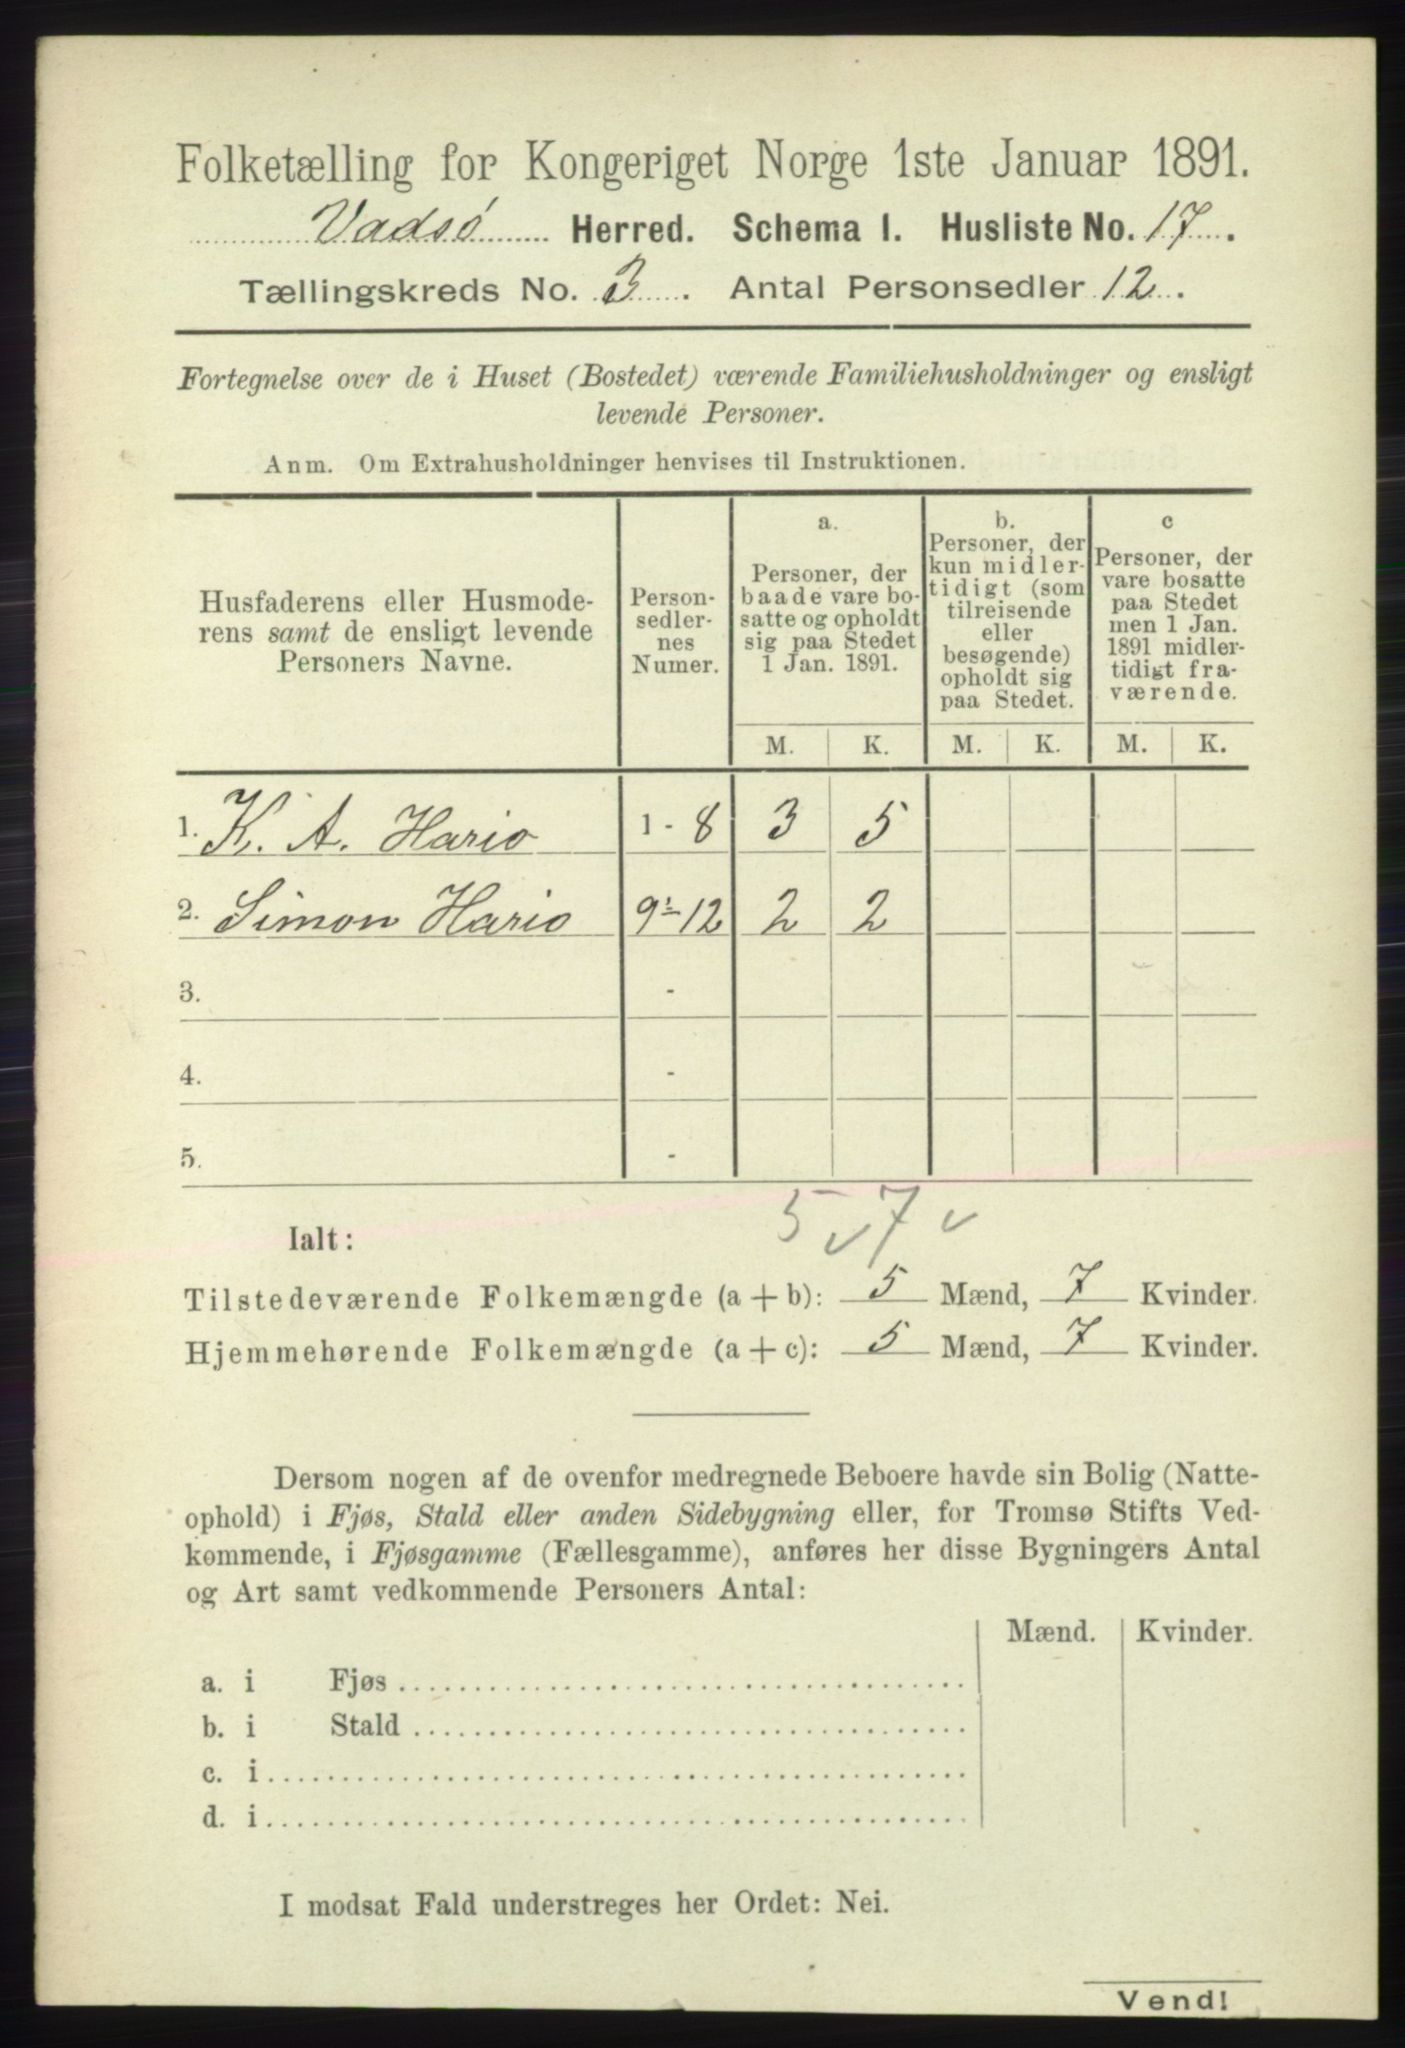 Folketælling for Kongeriget Norge 1ste Januar 1891.
Vadsö Herred. Schema I. Husliste No. 17.
Tællingskreds No. 3. Antal Personsedler 12.
Fortegnelse over de i Huset (Bostedet) værende Familiehusholdninger og ensligt
levende Personer.
Anm. Om Extrahusholdninger henvises til Instruktionen.
Husfaderens eller Husmode-
rens samt de ensligt levende
Personers Navne.
Person-
sedler-
nes
Numer.
a.
Personer, der
baade vare bo-
satte og opholdt
sig paa Stedet
1 Jan. 1891.
b.
Personer, der
kun midler-
tidigt (som
tilreisende
eller
besøgende)
opholdt sig
paa Stedet.
c
Personer, der
vare bosatte
paa Stedet
men 1 Jan.
1891 midler-
tidigt fra-
værende.
M. K. M. K. M. K.
1. K. A. Hario 1 - 8 3 5
2. Simon Hario 9 - 12 2 2
3. -
4. -
5. -
5 v 7 v
Ialt:
Tilstedeværende Folkemængde (a + b): 5 Mænd, 7 Kvinder.
Hjemmehørende Folkemængde (a + c): 5 Mænd, 7 Kvinder.
Dersom nogen af de ovenfor medregnede Beboere havde sin Bolig (Natte-
ophold) i Fjøs, Stald eller anden Sidebygning eller, for Tromsø Stifts Ved-
kommende, i Fjøsgamme (Fællesgamme), anføres her disse Bygningers Antal
og Art samt vedkommende Personers Antal:
Mænd. Kvinder.
a. i Fjøs
b. i Stald
c. i
d. i
I modsat Fald understreges her Ordet: Nei.
Vend!